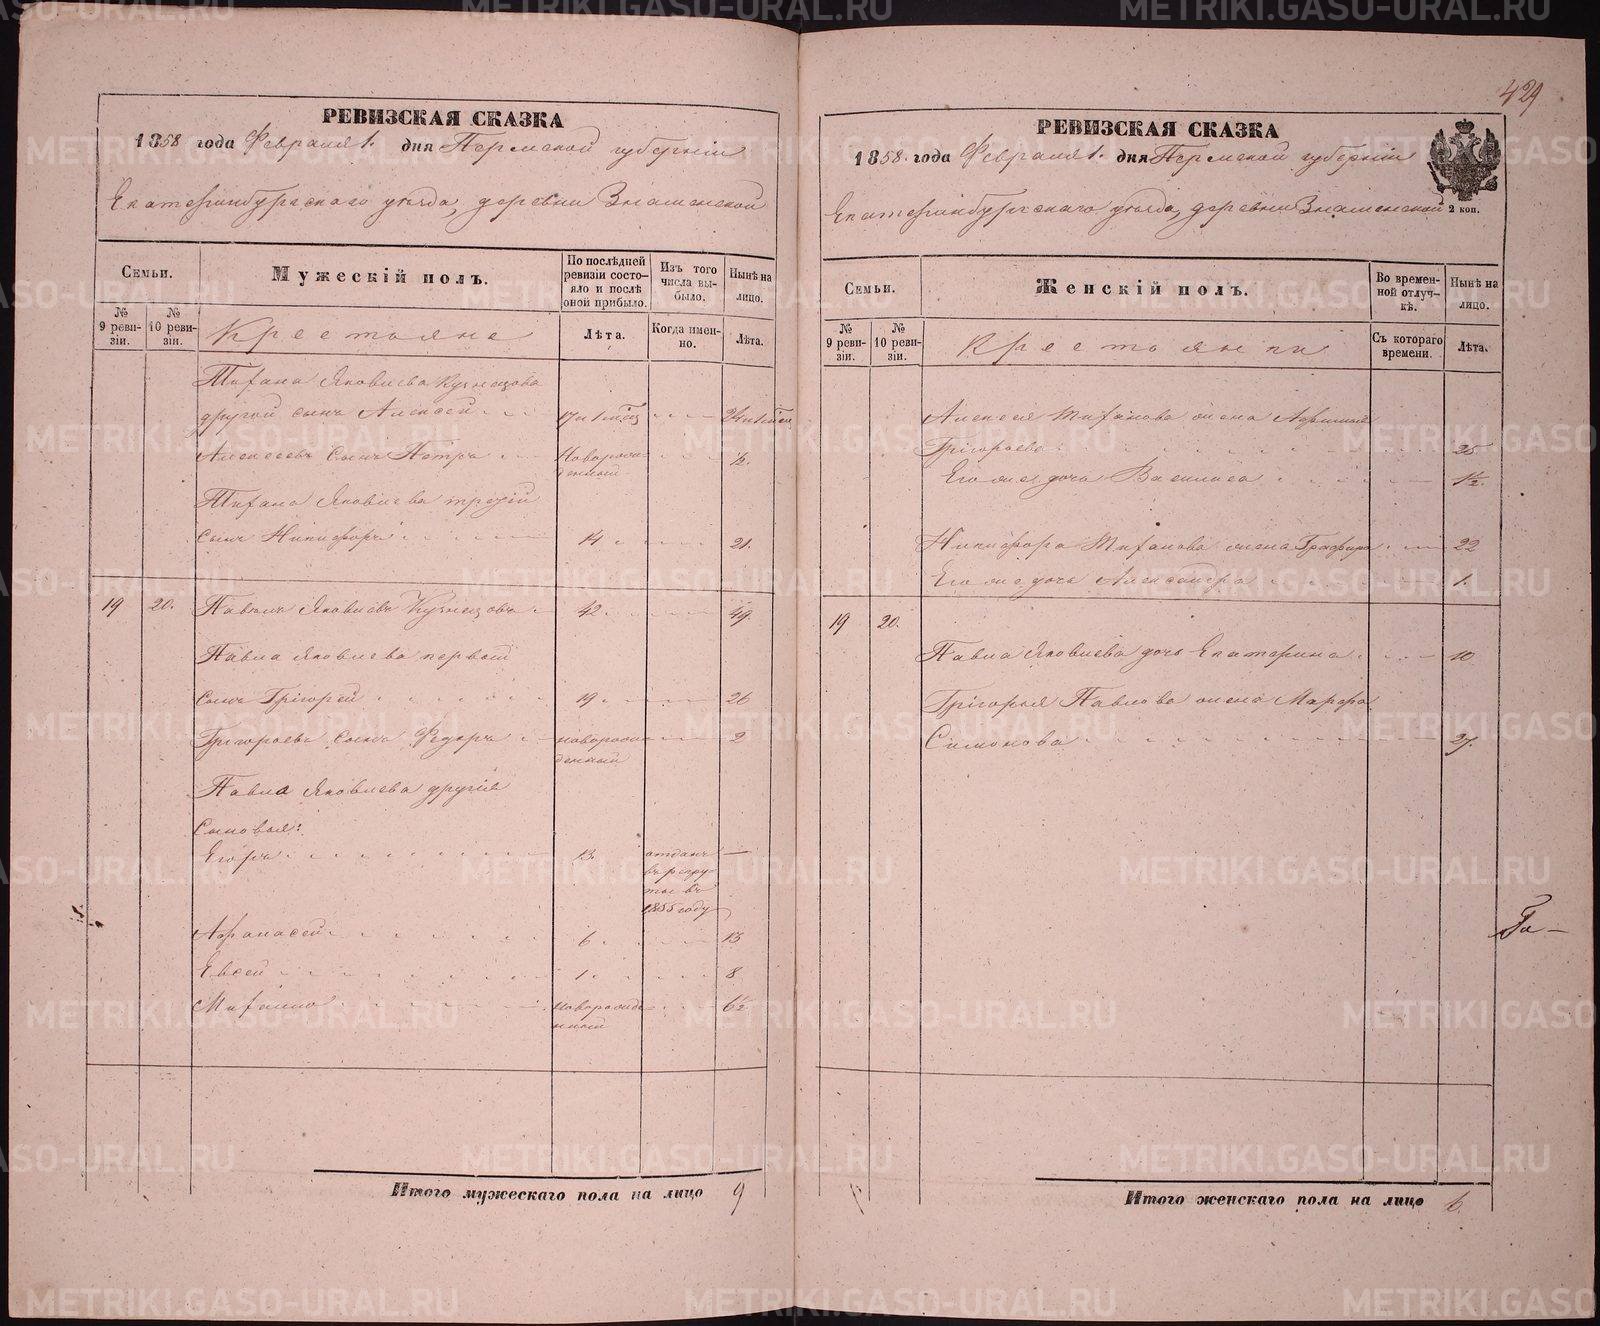 РЕВИЗСКАЯ СКАЗКА
1858 года Февраля 1. дня Пермской губернiи
Екатеринбургскаго уѣзда, деревни Знаменской
Семьи.
Мужескiй полъ.
По послѣдней ревизiи состояло и послѣ оной прибыло.
Изъ того числа выбыло.
Нынѣ на лицо.
№ 9 ревизiи.
№ 10 ревизiи.
Крестьяне
Лѣта.
Когда именно.
Лѣта.
Яковлева Кузнецова
другой сынъ Алексей 17 и 1 24
Алексеевъ сынъ Петръ новорожденный ½
Яковлева третiй
сынъ Никифоръ 14 21.
19 20. Павелъ Яковлевъ Кузнецовъ 42 49
Павла Яковлева первый
сынъ Григорей 19 26
Григорьевъ сынъ Федоръ новорожденный 2
Павла Яковлева другiе
сыновья:
Егоръ 13. отданъ въ рекруты въ 1855 году —
Афанасей 6 13
Евсей 1 8
новорожденный 6½
Итого мужескаго пола на лицо 9
429
РЕВИЗСКАЯ СКАЗКА
1858. года Февраля 1. дня Пермской губернiи
Екатеринбургскаго уѣзда, деревни Знаменской
2 коп.
Семьи.
Женскiй полъ.
Во временной отлучкѣ.
Нынѣ на лицо.
№ 9 ревизiи.
№ 10 ревизiи.
Крестьянки
Съ котораго времени.
Лѣта.
Алексея жена
Григорьева 25
Его же дочь Василиса 1½.
Никифора жена Глафира 22
Его же дочь Александра 1.
19 20.
Павла Яковлева дочь Екатерина 10
Григорья Павлова жена Марфа
Симонова 27.
Итого женскаго пола на лицо 6.
METRIKI.GASO-URAL.RU